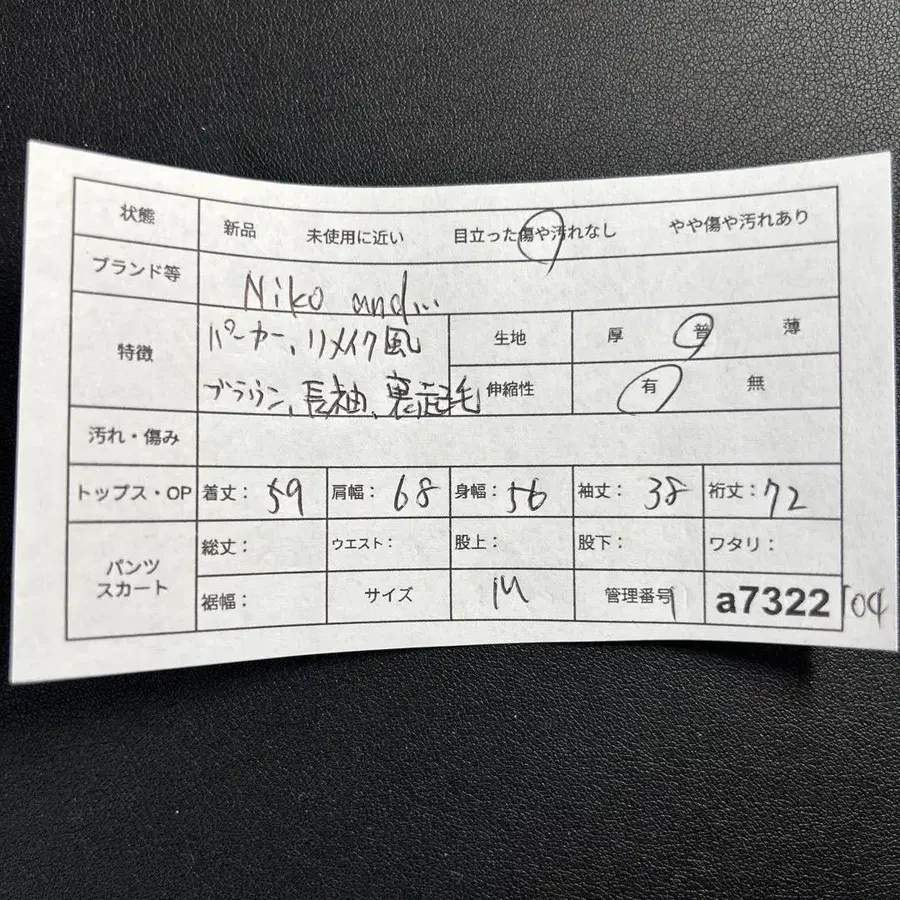 状態 新品 未使用に近い 目立った傷や汚れなし やや傷や汚れあり
ブランド等 Niko and...
特徴 パーカー、リメイク風 生地 厚 普 薄
ブラウン、長袖、裏起毛 伸縮性 有 無
汚れ・傷み
トップス・OP 着丈: 59 肩幅: 68 身幅: 56 袖丈: 38 裄丈: 72
パンツ スカート 総丈: ウエスト: 股上: 股下: ワタリ:
裾幅: サイズ M 管理番号 a7322 104